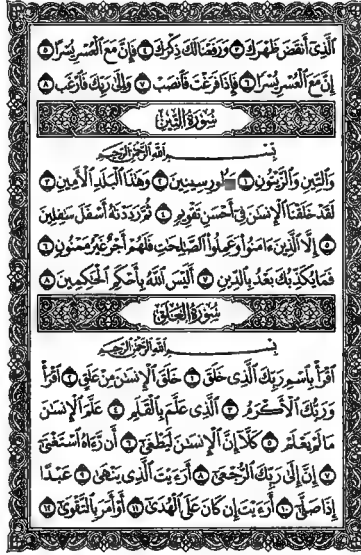 ٱلَّذِىٓ أَنقَضَ ظَهْرَكَ ٣ وَرَفَعْنَا لَكَ ذِكْرَكَ ٤ فَإِنَّ مَعَ ٱلْعُسْرِ يُسْرًا ٥
إِنَّ مَعَ ٱلْعُسْرِ يُسْرًا ٦ فَإِذَا فَرَغْتَ فَٱنصَبْ ٧ وَإِلَىٰ رَبِّكَ فَٱرْغَب ٨
سُورَةُ التِّينِ
بِسْمِ ٱللَّهِ ٱلرَّحْمَٰنِ ٱلرَّحِيمِ
وَٱلتِّينِ وَٱلزَّيْتُونِ ١ طُورِ سِينِينَ ٢ وَهَٰذَا ٱلْبَلَدِ ٱلْأَمِينِ ٣
لَقَدْ خَلَقْنَا ٱلْإِنسَٰنَ فِىٓ أَحْسَنِ تَقْوِيمٍ ٤ ثُمَّ رَدَدْنَٰهُ أَسْفَلَ سَٰفِلِينَ
٥ إِلَّا ٱلَّذِينَ ءَامَنُوا۟ وَعَمِلُوا۟ ٱلصَّٰلِحَٰتِ فَلَهُمْ أَجْرٌ غَيْرُ مَمْنُونٍ ٦
فَمَا يُكَذِّبُكَ بَعْدُ بِٱلدِّينِ ٧ أَلَيْسَ ٱللَّهُ بِأَحْكَمِ ٱلْحَٰكِمِينَ ٨
سُورَةُ العَلَقِ
بِسْمِ ٱللَّهِ ٱلرَّحْمَٰنِ ٱلرَّحِيمِ
ٱقْرَأْ بِٱسْمِ رَبِّكَ ٱلَّذِى خَلَقَ ١ خَلَقَ ٱلْإِنسَٰنَ مِنْ عَلَقٍ ٢ ٱقْرَأْ
وَرَبُّكَ ٱلْأَكْرَمُ ٣ ٱلَّذِى عَلَّمَ بِٱلْقَلَمِ ٤ عَلَّمَ ٱلْإِنسَٰنَ
مَا لَمْ يَعْلَمْ ٥ كَلَّآ إِنَّ ٱلْإِنسَٰنَ لَيَطْغَىٰٓ ٦ أَن رَّءَاهُ ٱسْتَغْنَىٰٓ
٧ إِنَّ إِلَىٰ رَبِّكَ ٱلرُّجْعَىٰٓ ٨ أَرَءَيْتَ ٱلَّذِى يَنْهَىٰ ٩ عَبْدًا
إِذَا صَلَّىٰٓ ١٠ أَرَءَيْتَ إِن كَانَ عَلَى ٱلْهُدَىٰٓ ١١ أَوْ أَمَرَ بِٱلتَّقْوَىٰٓ ١٢